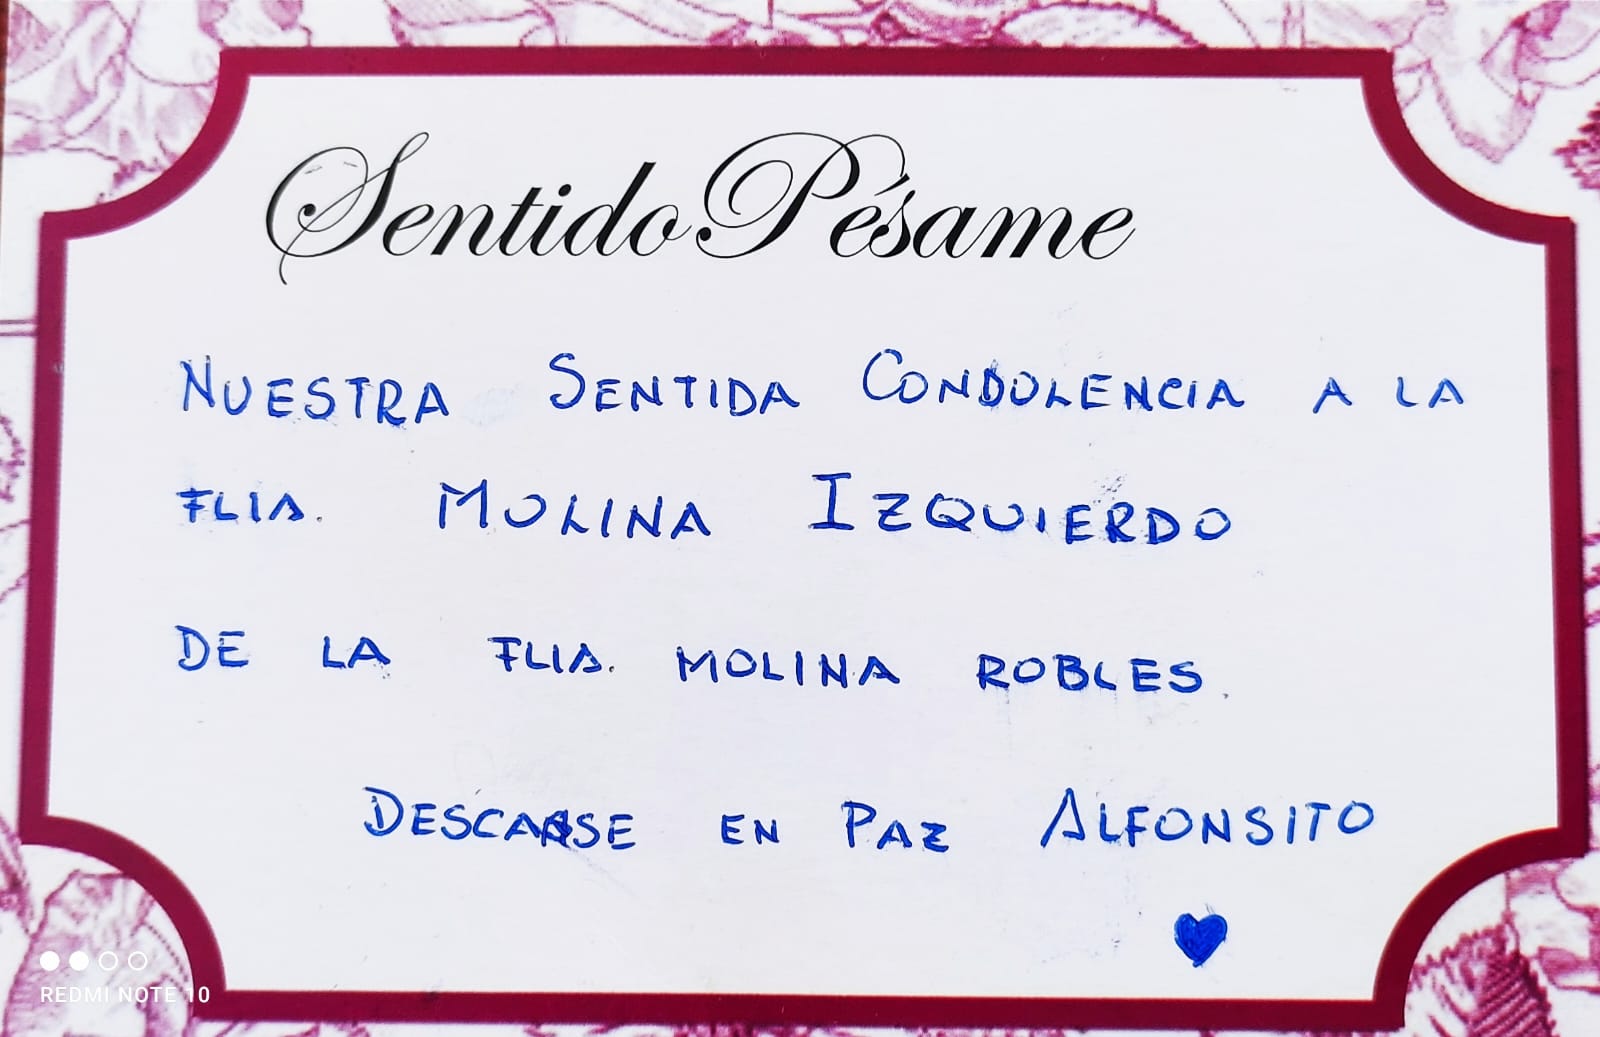 Sentido Pésame
NUESTRA SENTIDA CONDOLENCIA A LA
FLIA. MOLINA IZQUIERDO
DE LA FLIA. MOLINA ROBLES.
DESCANSE EN PAZ ALFONSITO
REDMI NOTE 10